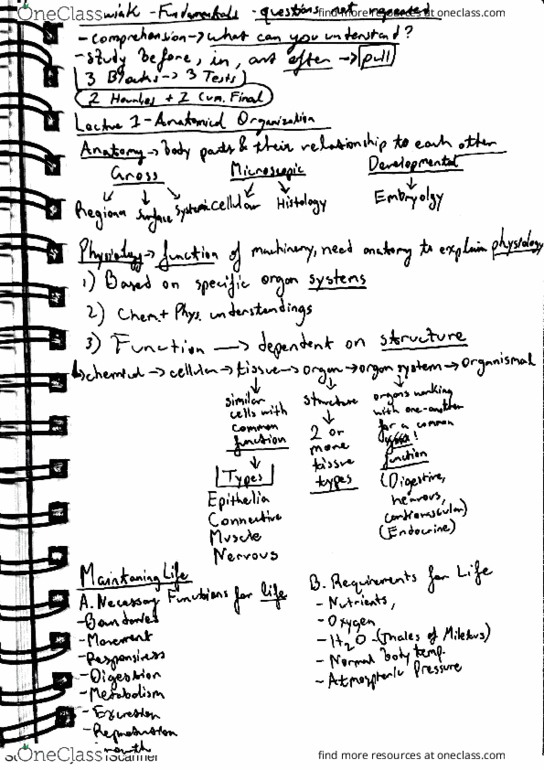 OneClass
find more resources at oneclass.com
-Fundamentals -questions not repeated
-comprehension→what can you understand?
-study before, in, and after → pull
3 Blocks → 3 Tests
+ 1 Cum. Final
Lecture 1 - Anatomical Organization
Anatomy → body parts & their relationship to each other
Gross Microscopic Developmental
Regional Surface Systemic cellular Histology Embryolgy
Physiology → function of machinery, need anatomy to explain physiology
1) Based on specific organ systems
2) Chem + Phys. understandings
3) Function → dependent on structure
↳chemical → cellular → tissue → organ → organ system → Organismal
similar cells with common function
structure
2 or more tissue types
organs working with one-another for a common function
(Digestive, nervous, cardiovascular)
(Endocrine)
Types
Epithelia
Connective
Muscle
Nervous
Maintaning Life
A. Necessary Functions for life
-Boundaries
-Movement
-Responsivess
-Digestion
-Metabolism
-Excretion
-Reproduction
-Growth
B. Requirements for Life
- Nutrients,
- Oxygen
- H2O -(Thales of Miletus)
- Normal body temp.
- Atmospheric Pressure
OneClass
find more resources at oneclass.com